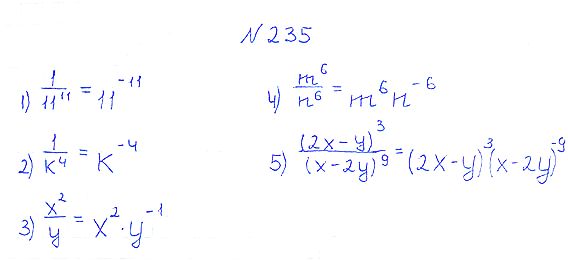 N 235
1) 1/11^11 = 11^-11
2) 1/K^4 = K^-4
3) x^2/y = x^2 · y^-1
4) m^6/n^6 = m^6 n^-6
5) (2x-y)^3/(x-2y)^9 = (2x-y)^3 (x-2y)^-9